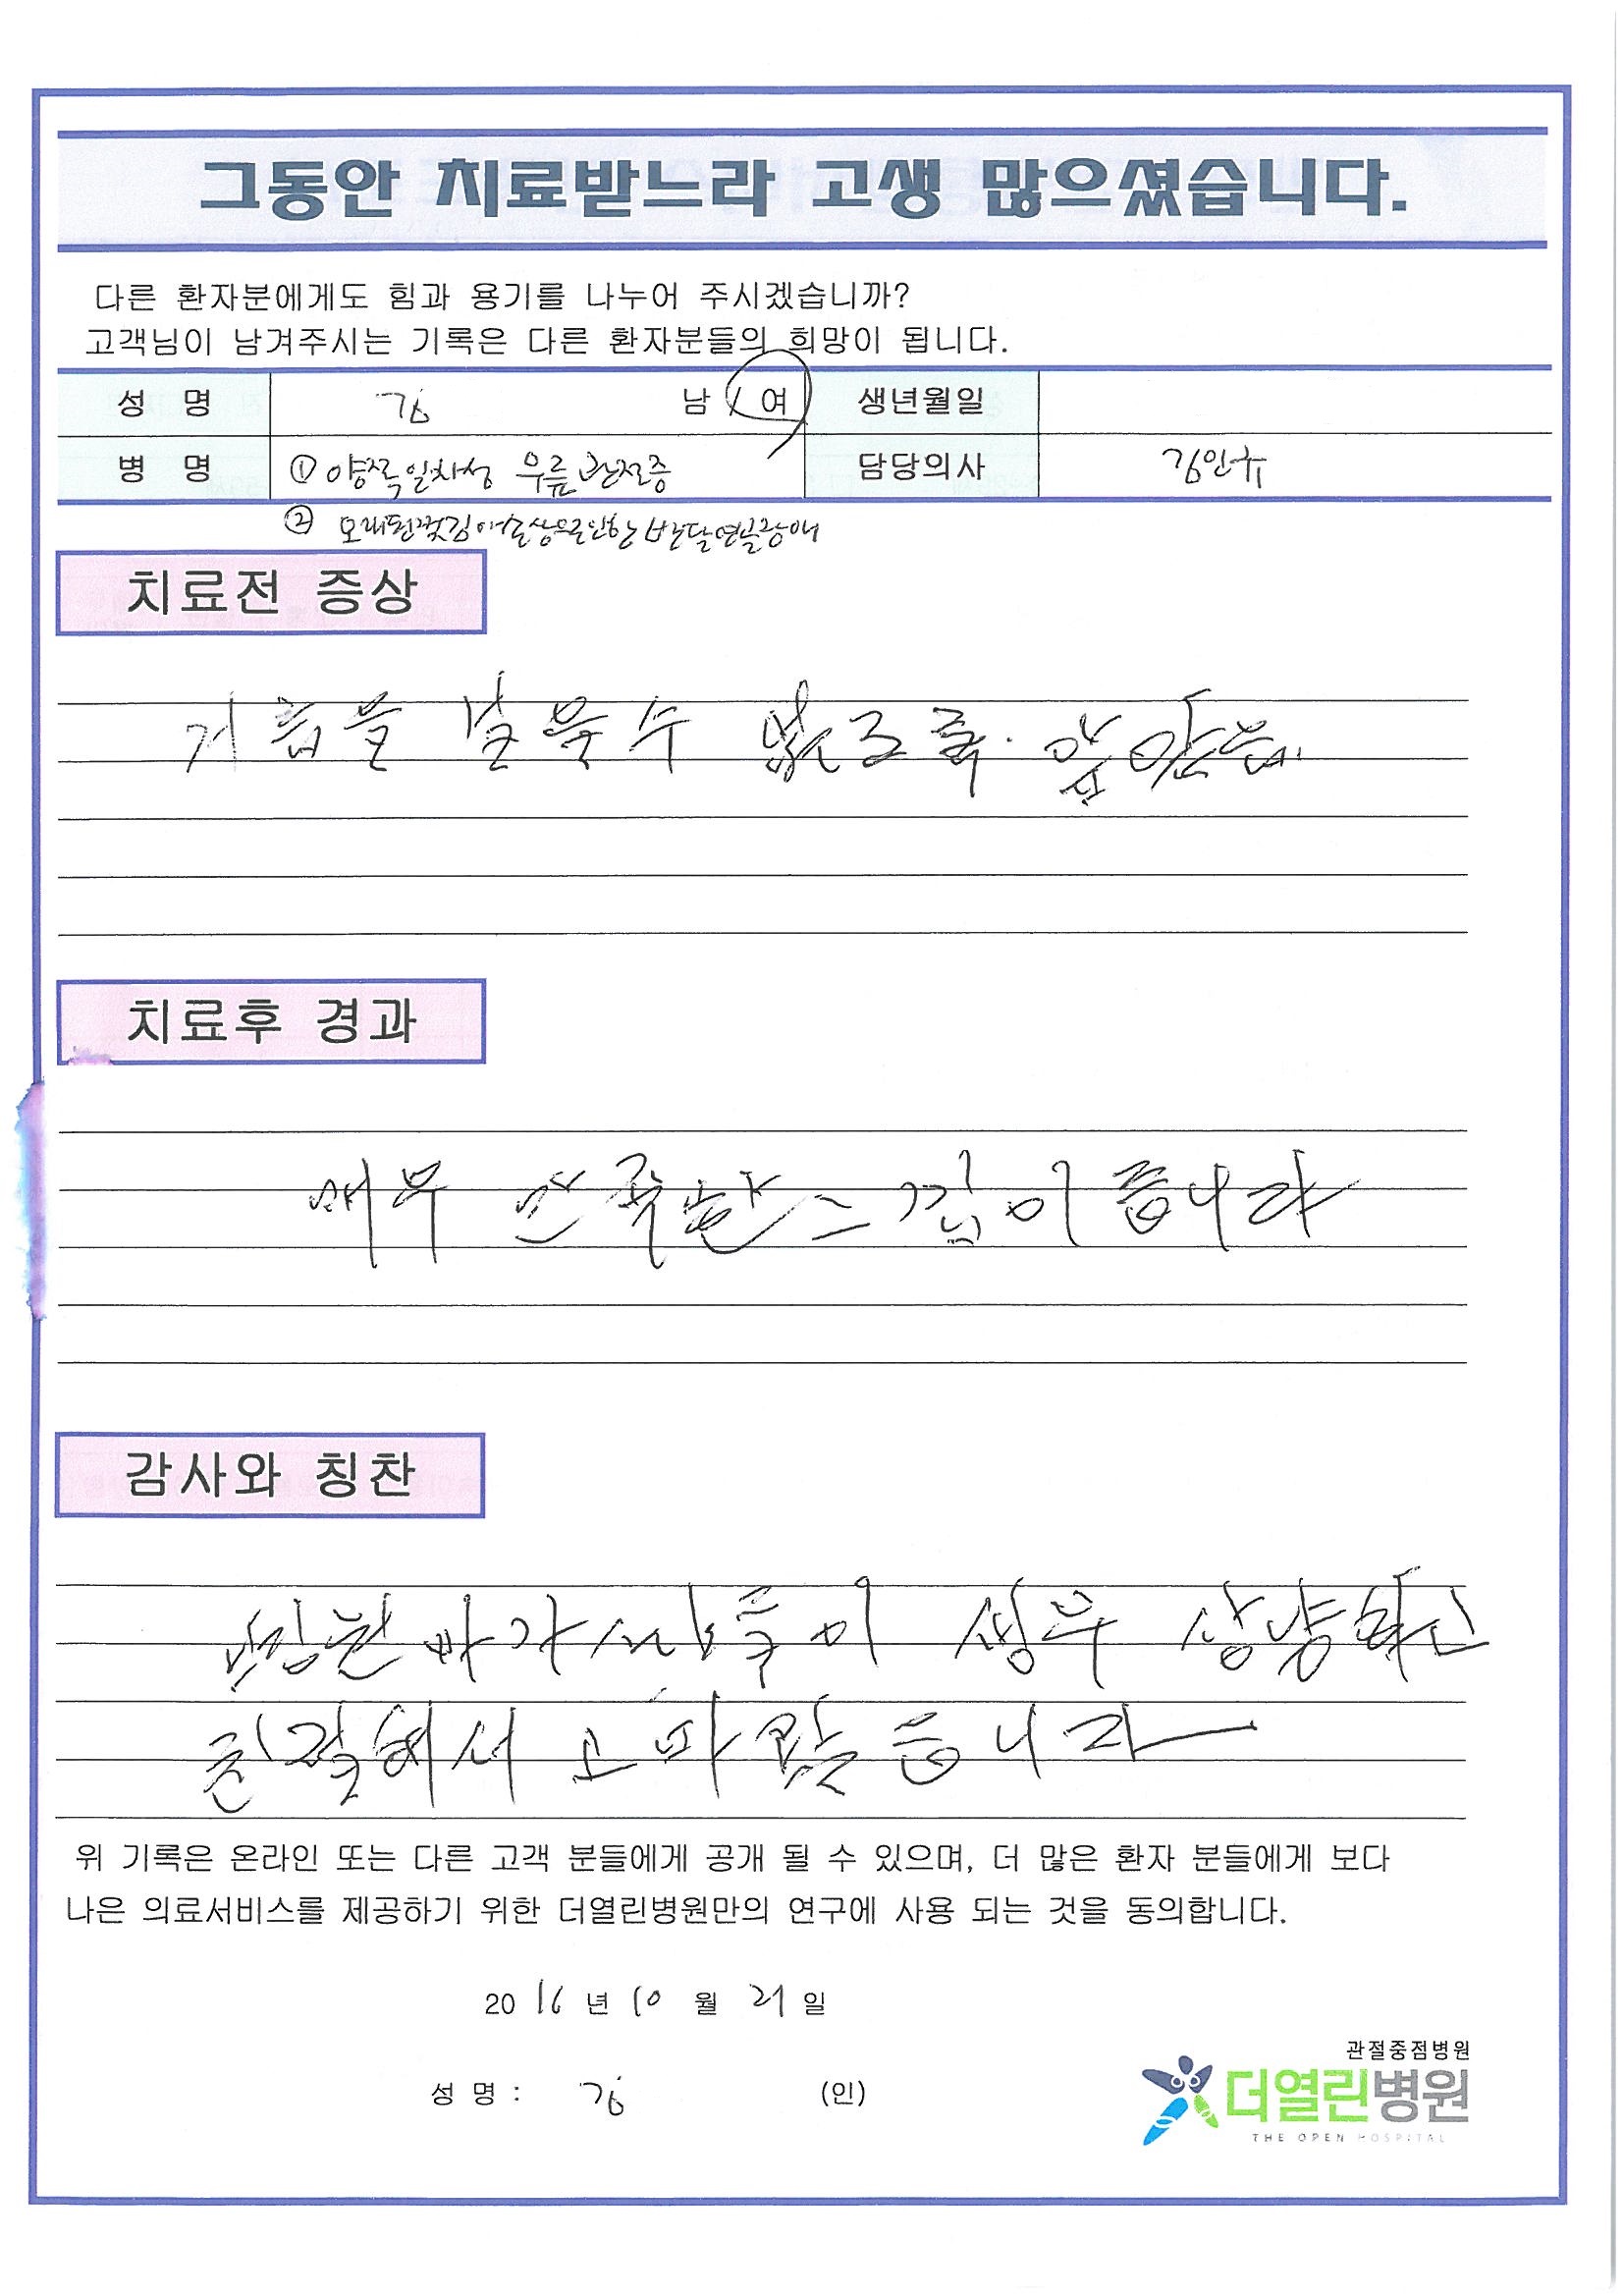 그동안 치료받느라 고생 많으셨습니다.
다른 환자분에게도 힘과 용기를 나누어 주시겠습니까?
고객님이 남겨주시는 기록은 다른 환자분들의 희망이 됩니다.
성 명 김 남 / 여 생년월일
병 명 ① 양쪽일차성 무릎관절증 담당의사 김인규
② 오래된찢김에손상으로인한 반달연골장애
치료전 증상
거름을 걸을수 없도록. 앞았음.
치료후 경과
매우 만족한 느낌이 듭니다
감사와 칭찬
이 상냥하신
친절해서 고마웠습니다
위 기록은 온라인 또는 다른 고객 분들에게 공개 될 수 있으며, 더 많은 환자 분들에게 보다
나은 의료서비스를 제공하기 위한 더열린병원만의 연구에 사용 되는 것을 동의합니다.
2016 년 10 월 21 일
성 명 : 김 (인)
관절중점병원
더열린병원
THE OPEN HOSPITAL